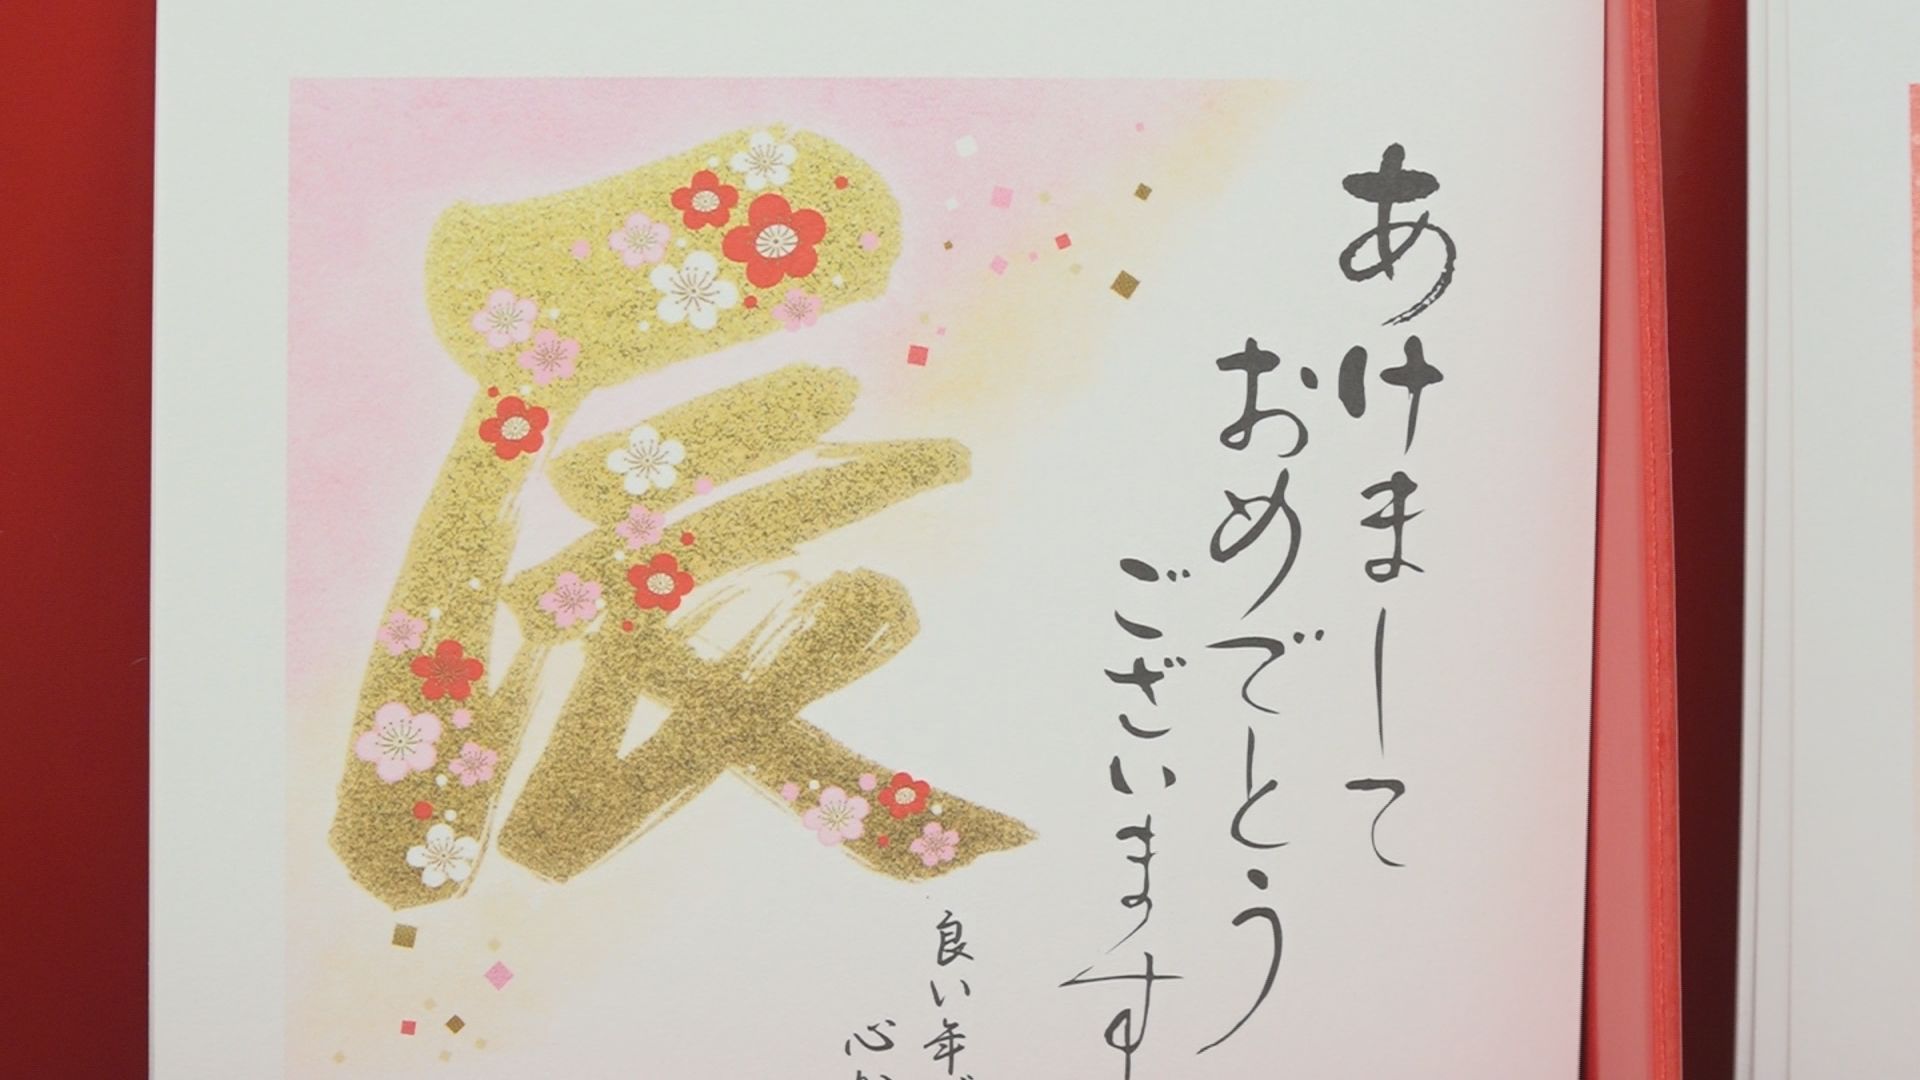 辰
あけまして
おめでとう
ございます
良い年
心